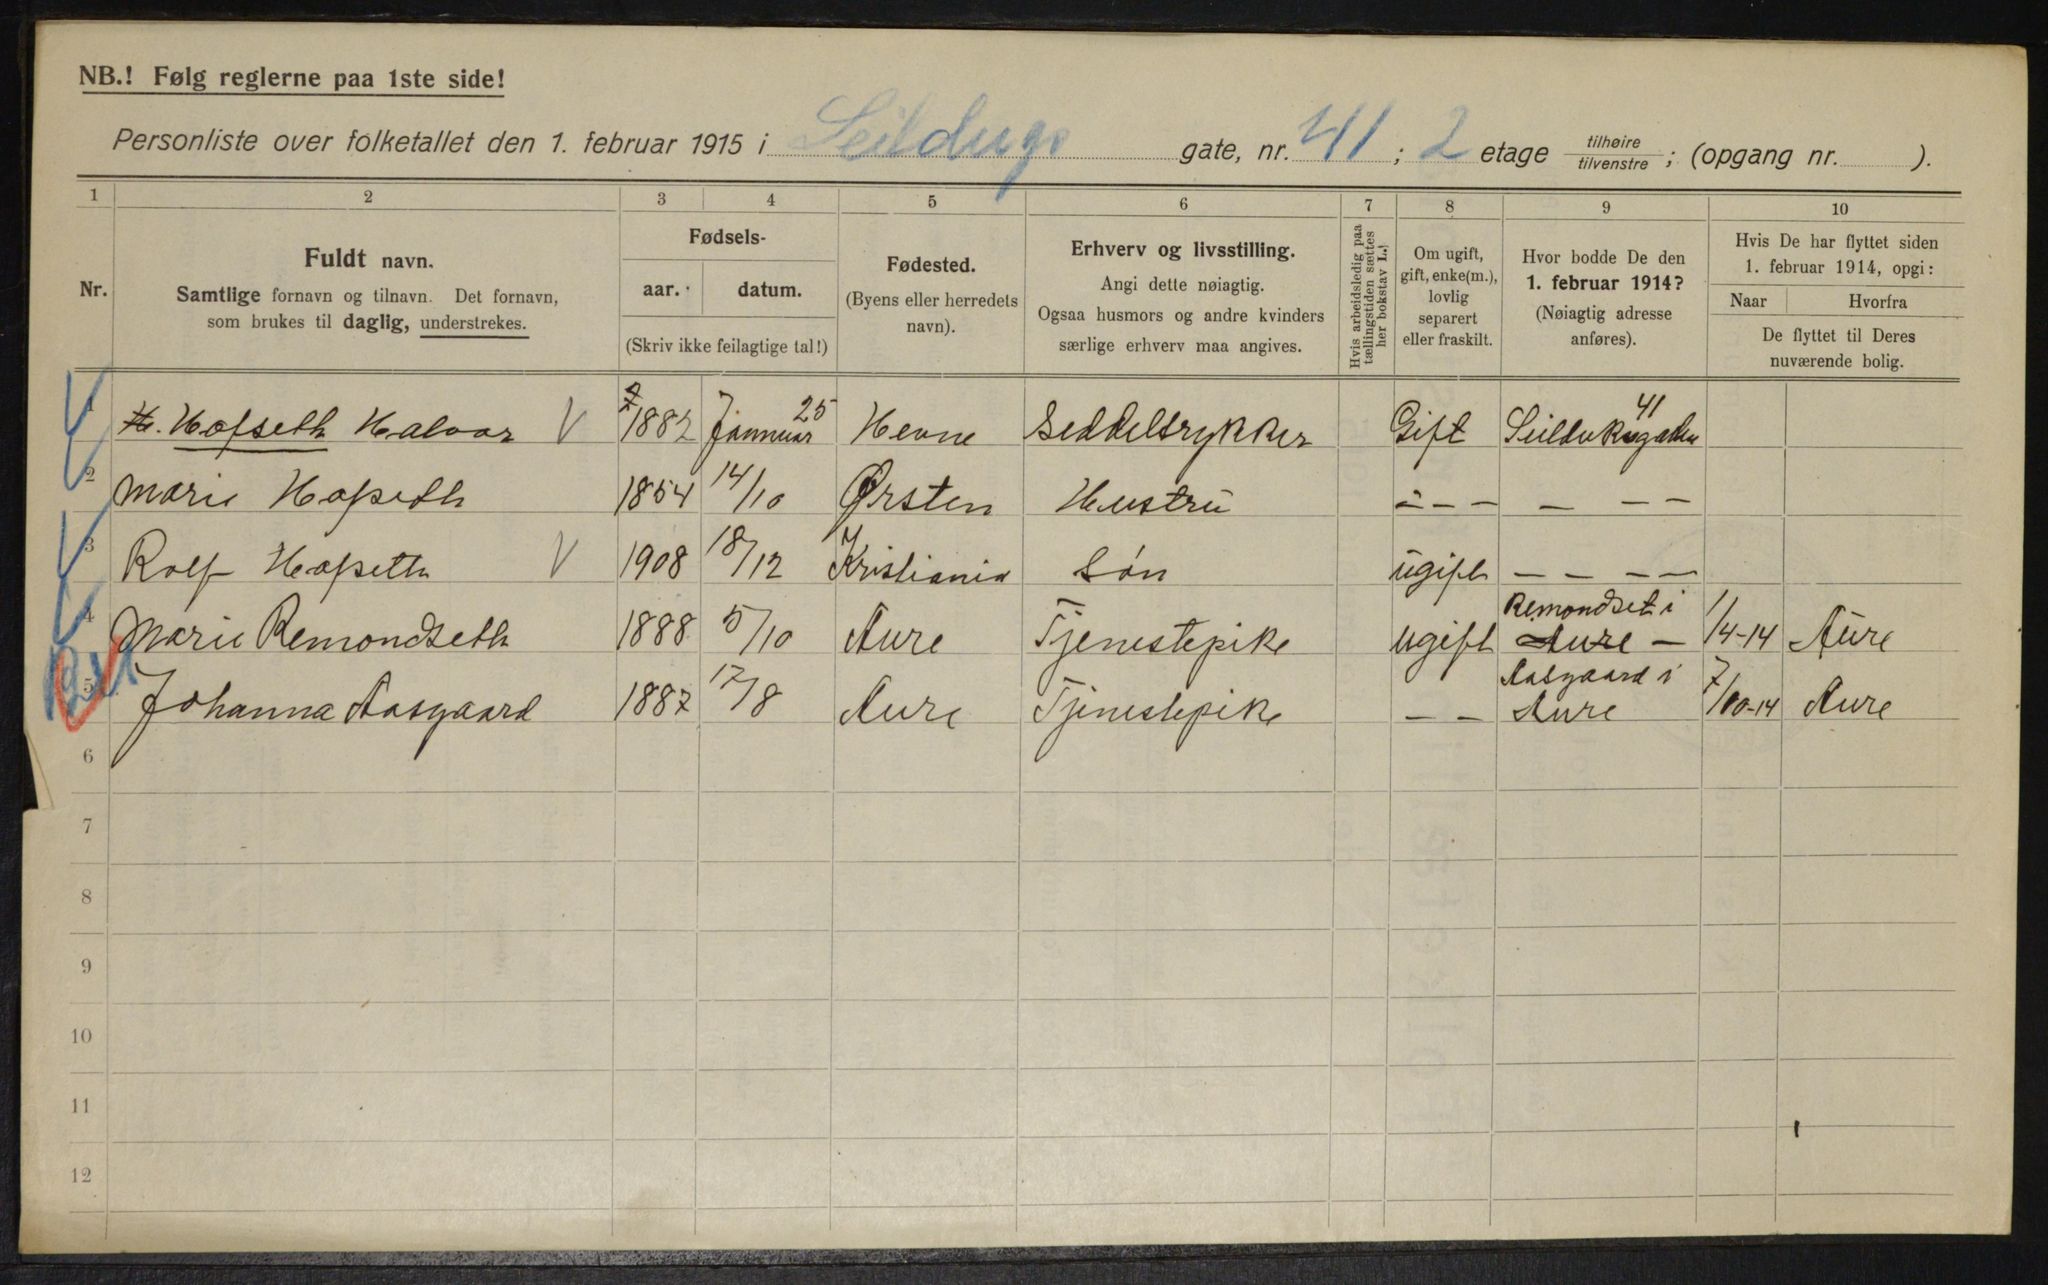 NB.! Følg reglerne paa 1ste side!
Personliste over folketallet den 1. februar 1915 i Seildugs gate, nr. 41; 2 etage tilhøire tilvenstre; (opgang nr. ).
1 2 3 4 5 6 7 8 9 10
Nr.
Fuldt navn.
Samtlige fornavn og tilnavn. Det fornavn,
som brukes til daglig, understrekes.
Fødsels-
aar. datum.
(Skriv ikke feilagtige tal!)
Fødested.
(Byens eller herredets
navn).
Erhverv og livsstilling.
Angi dette nøiagtig.
Ogsaa husmors og andre kvinders
særlige erhverv maa angives.
Hvis arbeidsledig paa
tællingstiden sættes
her bokstav L.!
Om ugift,
gift, enke(m.),
lovlig
separert
eller fraskilt.
Hvor bodde De den
1. februar 1914?
(Nøiagtig adresse
anføres).
Hvis De har flyttet siden
1. februar 1914, opgi:
Naar Hvorfra
De flyttet til Deres
nuværende bolig.
1 H. Hofseth Halvor V 1882 Jannuar 25 Hevne Seddeltrykker Gift Seilduksgaden 41
2 Marie Hofseth 1854 14/10 Ørsten Hustru - - - - - -
3 Rolf Hofseth V 1908 18/12 Kristiania Søn ugift - - - -
4 Marie Remondseth 1888 5/10 Aure Tjenestepike ugift Remondset i Aure - 1/4-14 Aure
5 Johanna Aasgaard 1887 17/8 Aure Tjenestepike - - Aasgaard i Aure 7/10-14 Aure
6
7
8
9
10
11
12